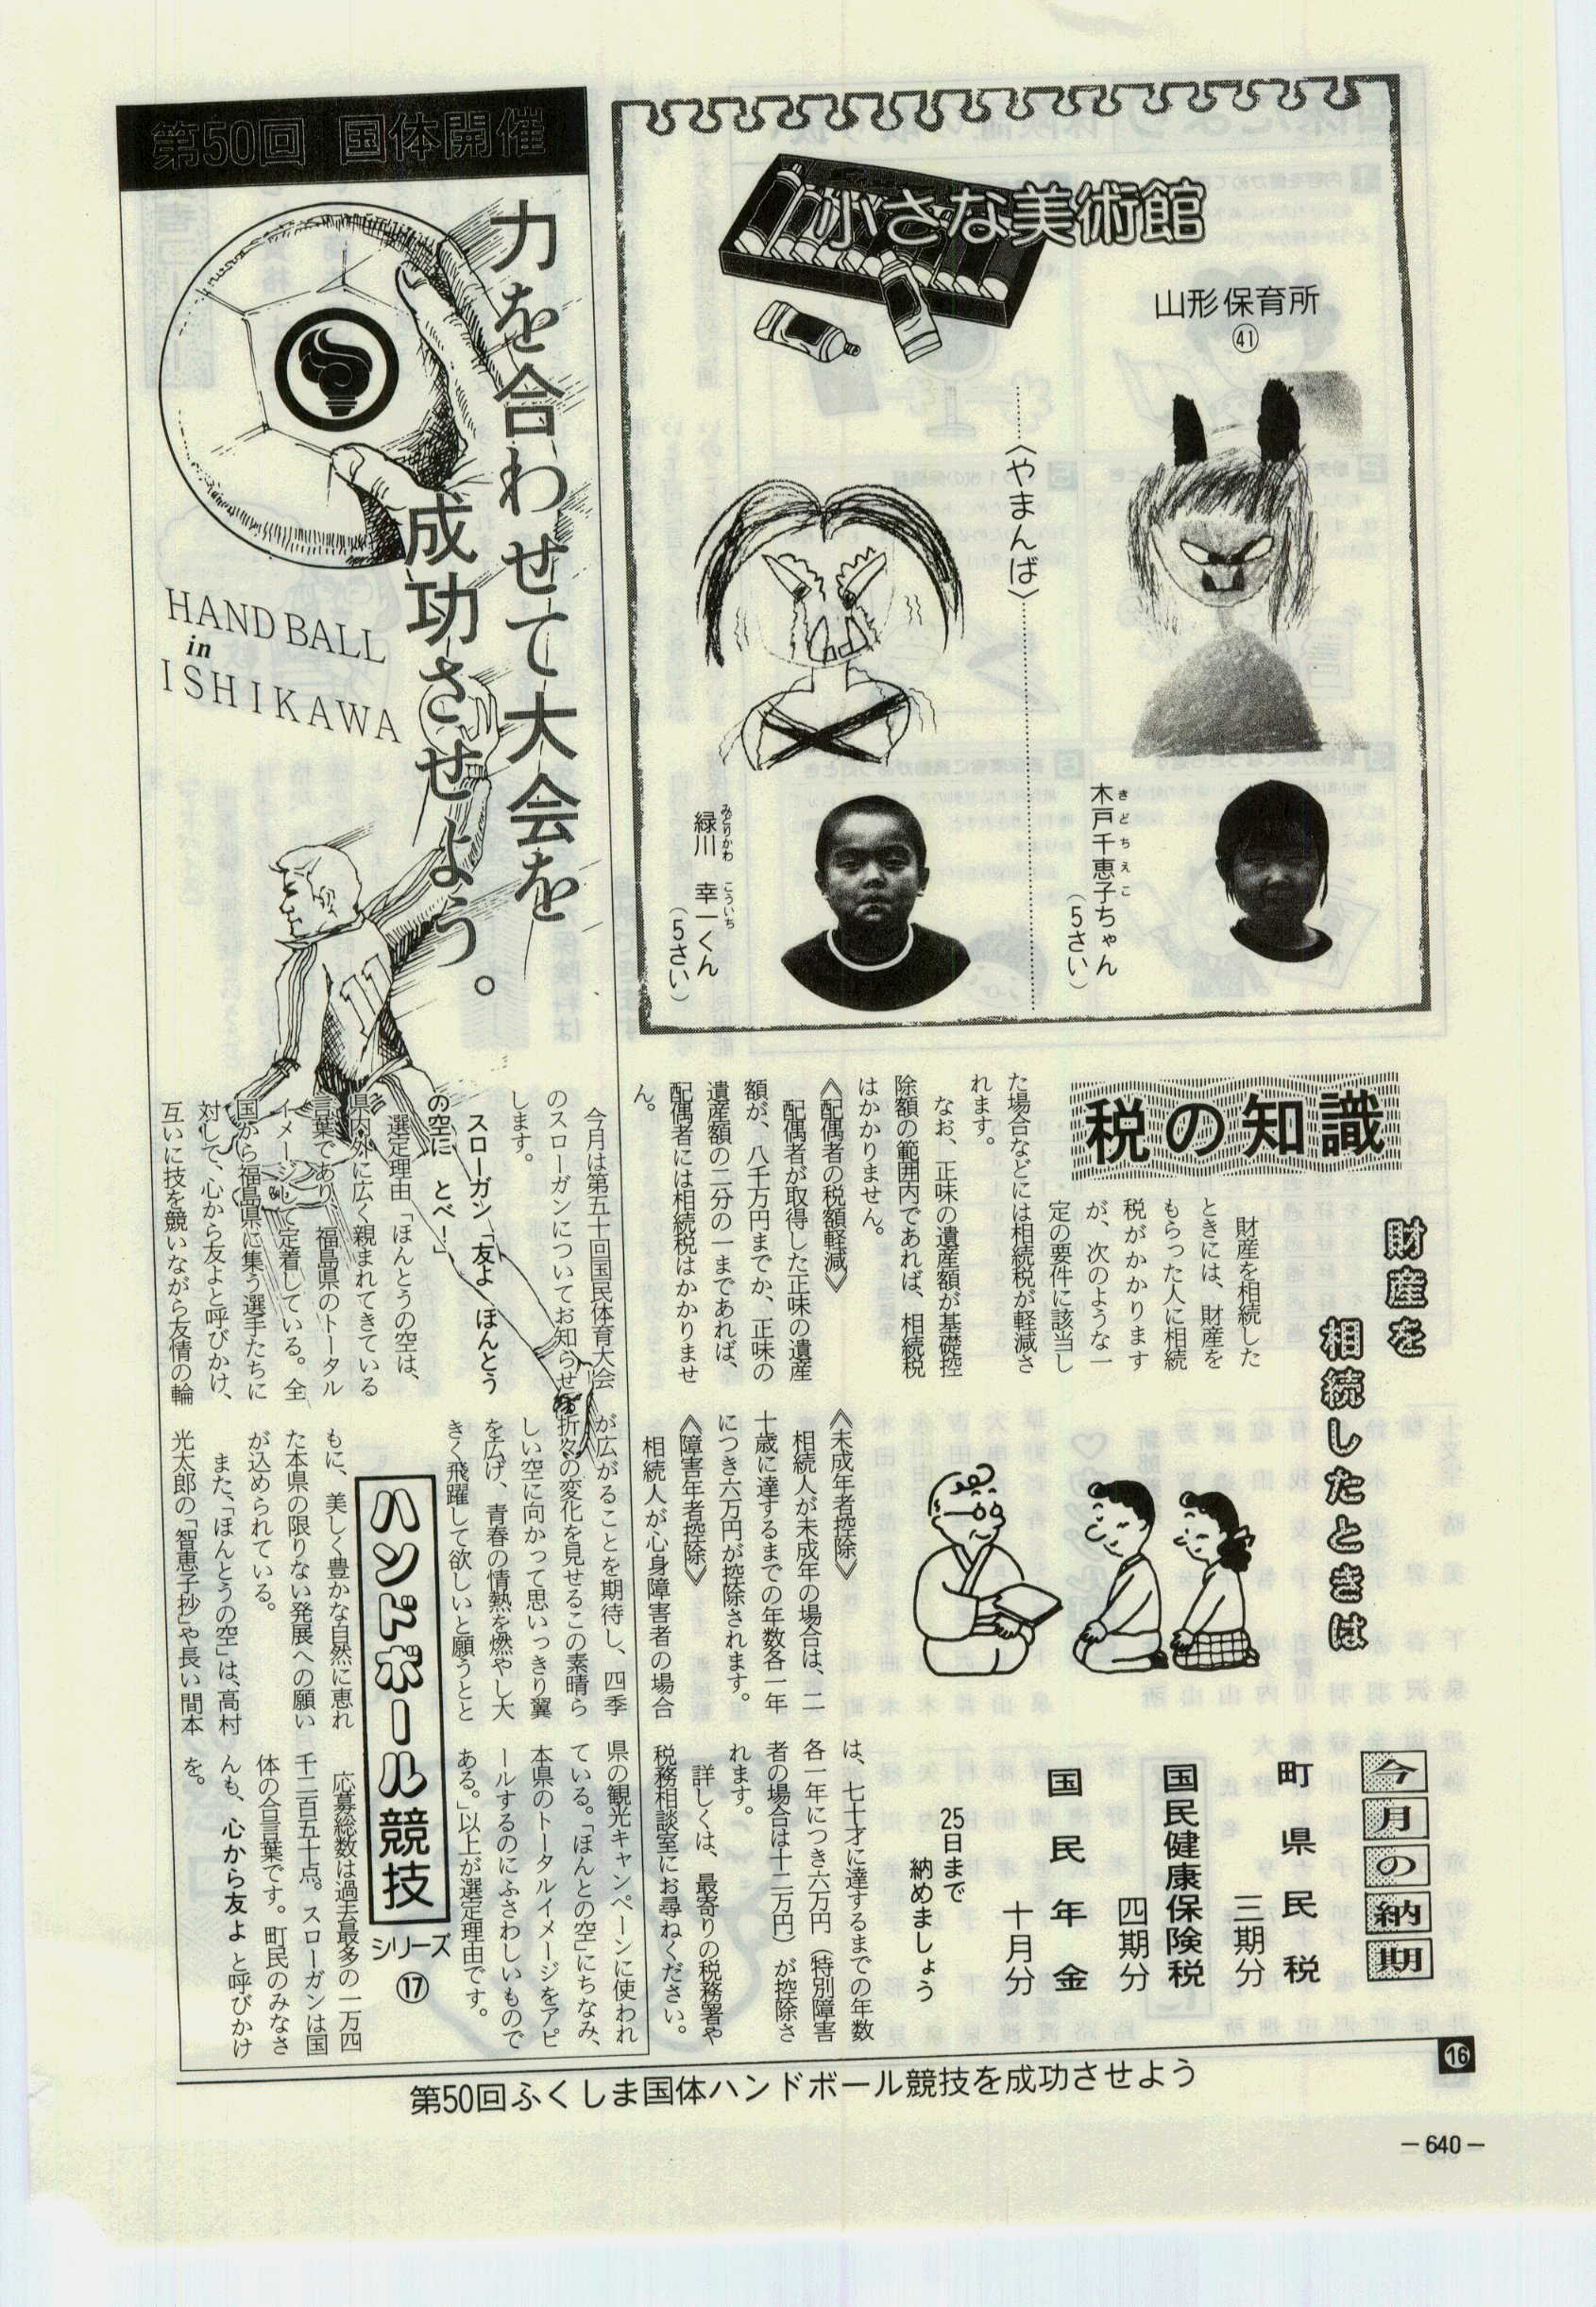 小さな美術館
山形保育所
㊶
〈やまんば〉
木戸千恵子ちゃん
きどちえこ
(5さい)
緑川 幸一くん
みどりかわ こういち
(5さい)
税の知識
財産を
相続したときは
財産を相続した
ときには、財産を
もらった人に相続
税がかかります
が、次のような一
定の要件に該当し
た場合などには相続税が軽減さ
れます。
なお、正味の遺産額が基礎控
除額の範囲内であれば、相続税
はかかりません。
《配偶者の税額軽減》
配偶者が取得した正味の遺産
額が、八千万円までか、正味の
遺産額の二分の一まであれば、
配偶者には相続税はかかりませ
ん。
《未成年者控除》
相続人が未成年の場合は、二
十歳に達するまでの年数各一年
につき六万円が控除されます。
《障害年者控除》
相続人が心身障害者の場合
は、七十才に達するまでの年数
各一年につき六万円（特別障害
者の場合は十二万円）が控除さ
れます。
詳しくは、最寄りの税務署や
税務相談室にお尋ねください。
今月の納期
町県民税
三期分
国民健康保険税
四期分
国民年金
十月分
25日まで
納めましょう
第50回 国体開催
力を合わせて大会を
成功させよう。
HAND BALL
in
ISHIKAWA
今月は第五十回国民体育大会
のスローガンについてお知らせ
します。
スローガン「友よ ほんとう
の空に とべ！」
選定理由「ほんとうの空は、
県内外に広く親まれてきている
言葉であり、福島県のトータル
イメージして定着している。全
国から福島県に集う選手たちに
対して、心から友よと呼びかけ、
互いに技を競いながら友情の輪
が広がることを期待し、四季
折々の変化を見せるこの素晴ら
しい空に向かって思いっきり翼
を広げ、青春の情熱を燃やし大
きく飛躍して欲しいと願うとと
もに、美しく豊かな自然に恵れ
た本県の限りない発展への願い
が込められている。
また、「ほんとうの空」は、高村
光太郎の「智恵子抄」や長い間本
県の観光キャンペーンに使われ
ている。「ほんとの空」にちなみ、
本県のトータルイメージをアピ
ールするのにふさわしいもので
ある。」以上が選定理由です。
応募総数は過去最多の一万四
千二百五十点。スローガンは国
体の合言葉です。町民のみなさ
んも、心から友よ と呼びかけ
を。
ハンドボール競技
シリーズ
⑰
第50回ふくしま国体ハンドボール競技を成功させよう
16
－640－